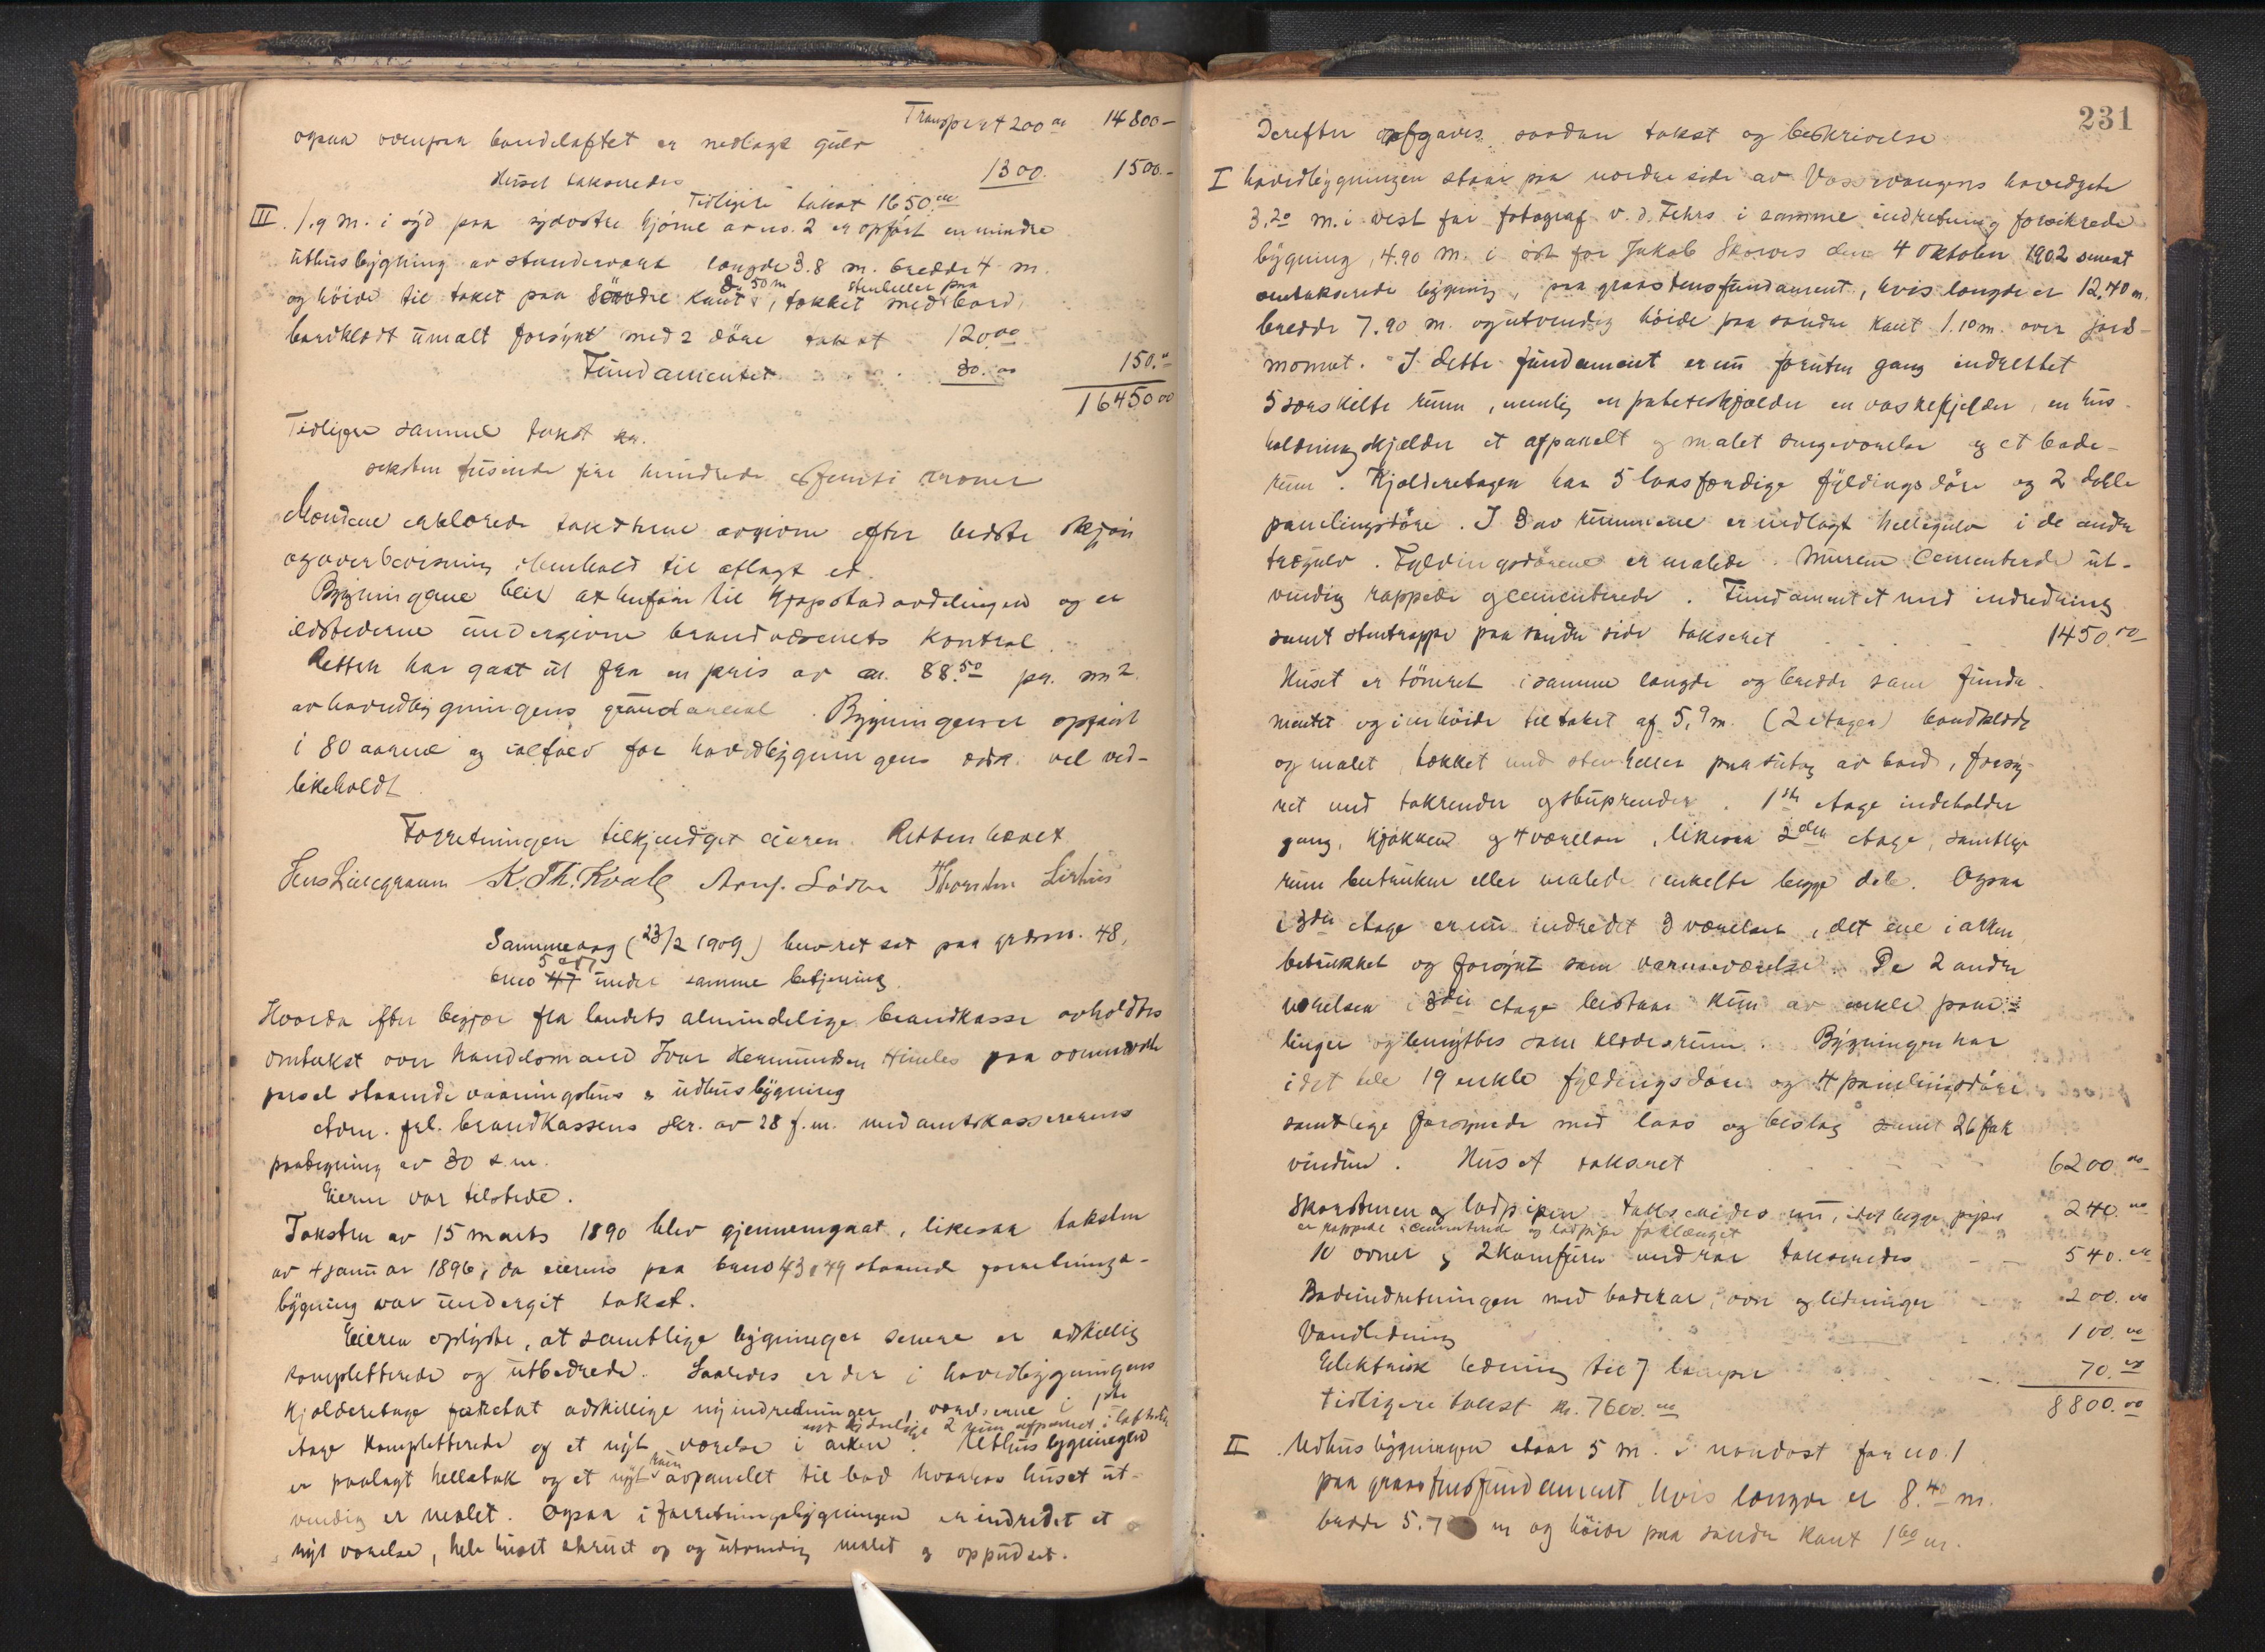 Transport 200 00 14800 –
ogsaa ovenpaa bandeloftet er nedlagt gulv
Huset takseredes 1300. 1500. –
Tidligere takst 1650.00
III. 1.9 m. i syd paa sydøstre hjørne av no. 2 er opført en mindre
uthusbygning av stenderverk længde 3.8 m. bredde 4 m.
2.50 m stenheller paa
og höide til taket paa söndre kant, tækket med bord,
bordklædt umalt forsynt med 2 döre takst 120.00
Fundamentet 30.00 150.00
16450 00
Tidligere samme takst kr.
seksten tusinde fire hundrede og femti kroner
Mændene erklærede taksterne avgivne efter bedste skjön
og overbevisning i henhold til aflagt ed.
Bygningene blir at henføre til kjøpstadavdelingen og er
ildstederne undergivne brandvæsenets kontrol.
Retten har gaat ut fra en pris av kr. 88.50 pr. m2.
av hovedbygningens grundareal. Bygningerne er opført
i 80 aarene og ialfald for hovedbygningens vedk. vel ved-
likeholdt.
Forretningen tilkjendgit eieren. Retten hævet
K. Th. Kvale Arnf. Thorsten
Samme dag (23/2 1909) blev ret sat paa grdsn. 48,
5 og
brno 47 under samme betjening.
Hvorda efter begjær fra landets almindelige brandkasse avholdtes
omtakst over handelsmand Ivar Hermundsen Himles paa ovennævnte
parsel staaende vaaningshus & udhusbygning
Adm. frl. brandkassens skr. av 28 f.m. med amtskassererens
paategning av 30 s.m.
Eieren var tilstede.
Taksten av 15 marts 1890 blev gjennemgaat, likesaa taksten
av 4 januar 1896, da eierens paa brno 43 & 49 staaende forretnings-
bygning var undergit takst.
Eieren oplyste, at samtlige bygninger senere er adskillig
kompletterede og utbedrede. Saaledes er der i hovedbygningens
kjælderetage foretat adskillige nyindredninger, værelserne i 1ste
samt 2 rum afpanelet i loftet
etage kompletterede og et nyt værelse i arken. Uthusbygningen
rum
er paalagt helletak og et nyt avpanelet til bad hvorhos huset ut-
vendig er malet. Ogsaa i forretningsbygningen er indredet et
nyt værelse, hele huset skruet op og utvendig malet og oppudset.
231
Derefter afgaves saadan takst og beskrivelse
I Hovedbygningen staar paa nordre side av Vossevangens hovedgate
3.20 m. i vest for fotograf v. d. Fehrs i samme indretning forsikrede
bygning, 4.90 m. i öst for Jakob Skorves den 4 oktober 1902 senest
omtakserede bygning, paa graastensfundament, hvis længde er 12.40 m.
bredde 7.90 m. og utvendig höide paa söndre kant 1.10 m. over jord-
smonnet. I dette fundament er nu foruten gang indrettet
5 særskilte rum, nemlig en poteteskjælder en vaskekjelder, en hus-
holdningskjælder et afpanelt og malet sengeværelse og et bade-
rum. Kjælderetagen har 5 laasfærdige fyldingsdöre og 2 doble
panelingsdöre. I 3 av rummene er nedlagt hellegulv i de andre
trægulv. Fyldingsdörene er malede. Murene cementerede ut-
vendig rappede og cementerede. Fundamentet med indredning
samt stentrappe paa söndre side takseret 1450.00
Huset er tömret i samme længde og bredde som funda-
mentet og i en höide til taket af 5.9 m. (2 etager) bordklædt
og malet tækket med stenheller paa sutag av bord, forsy-
net med takrender og stuprender. 1ste etage indeholder
gang, kjökken og 4 værelser, likesaa 2den etage, samtlige
rum betrukne eller malede, enkelte begge dele. Ogsaa
i 3die etage er nu indredet 3 værelser, det ene i arken
betrukket og forsynt som værelse. De 2 andre
værelser i 3die etage bestaar kun av enkle pane-
linger og benyttes som klædesrum. Bygningen har
i det hele 19 enkle fyldingsdöre og 4 panelingsdöre
samtlige forsynede med laas og beslag samt 26 fak
vinduer. Huset takseret 6200.00
Skorstenen og ladpipen takseredes nu, idet begge piper 240.00
er rappede & cementerede og ladpipe forlænget
10 ovner og 2 komfurer med rör takseredes 540.00
Badeindretningen med badekar, ovn og ledninger 200.00
Vandledning 100.00
Elektrisk ledning til 7 lamper 70.00
tidligere takst kr. 7600.00 8800.00
II Udhusbygningen staar 5 m. i nordost for no. 1
paa graastensfundament hvis længde er 8.40 m.
bredde 5.7 m og höide paa söndre kant 1 60 m.